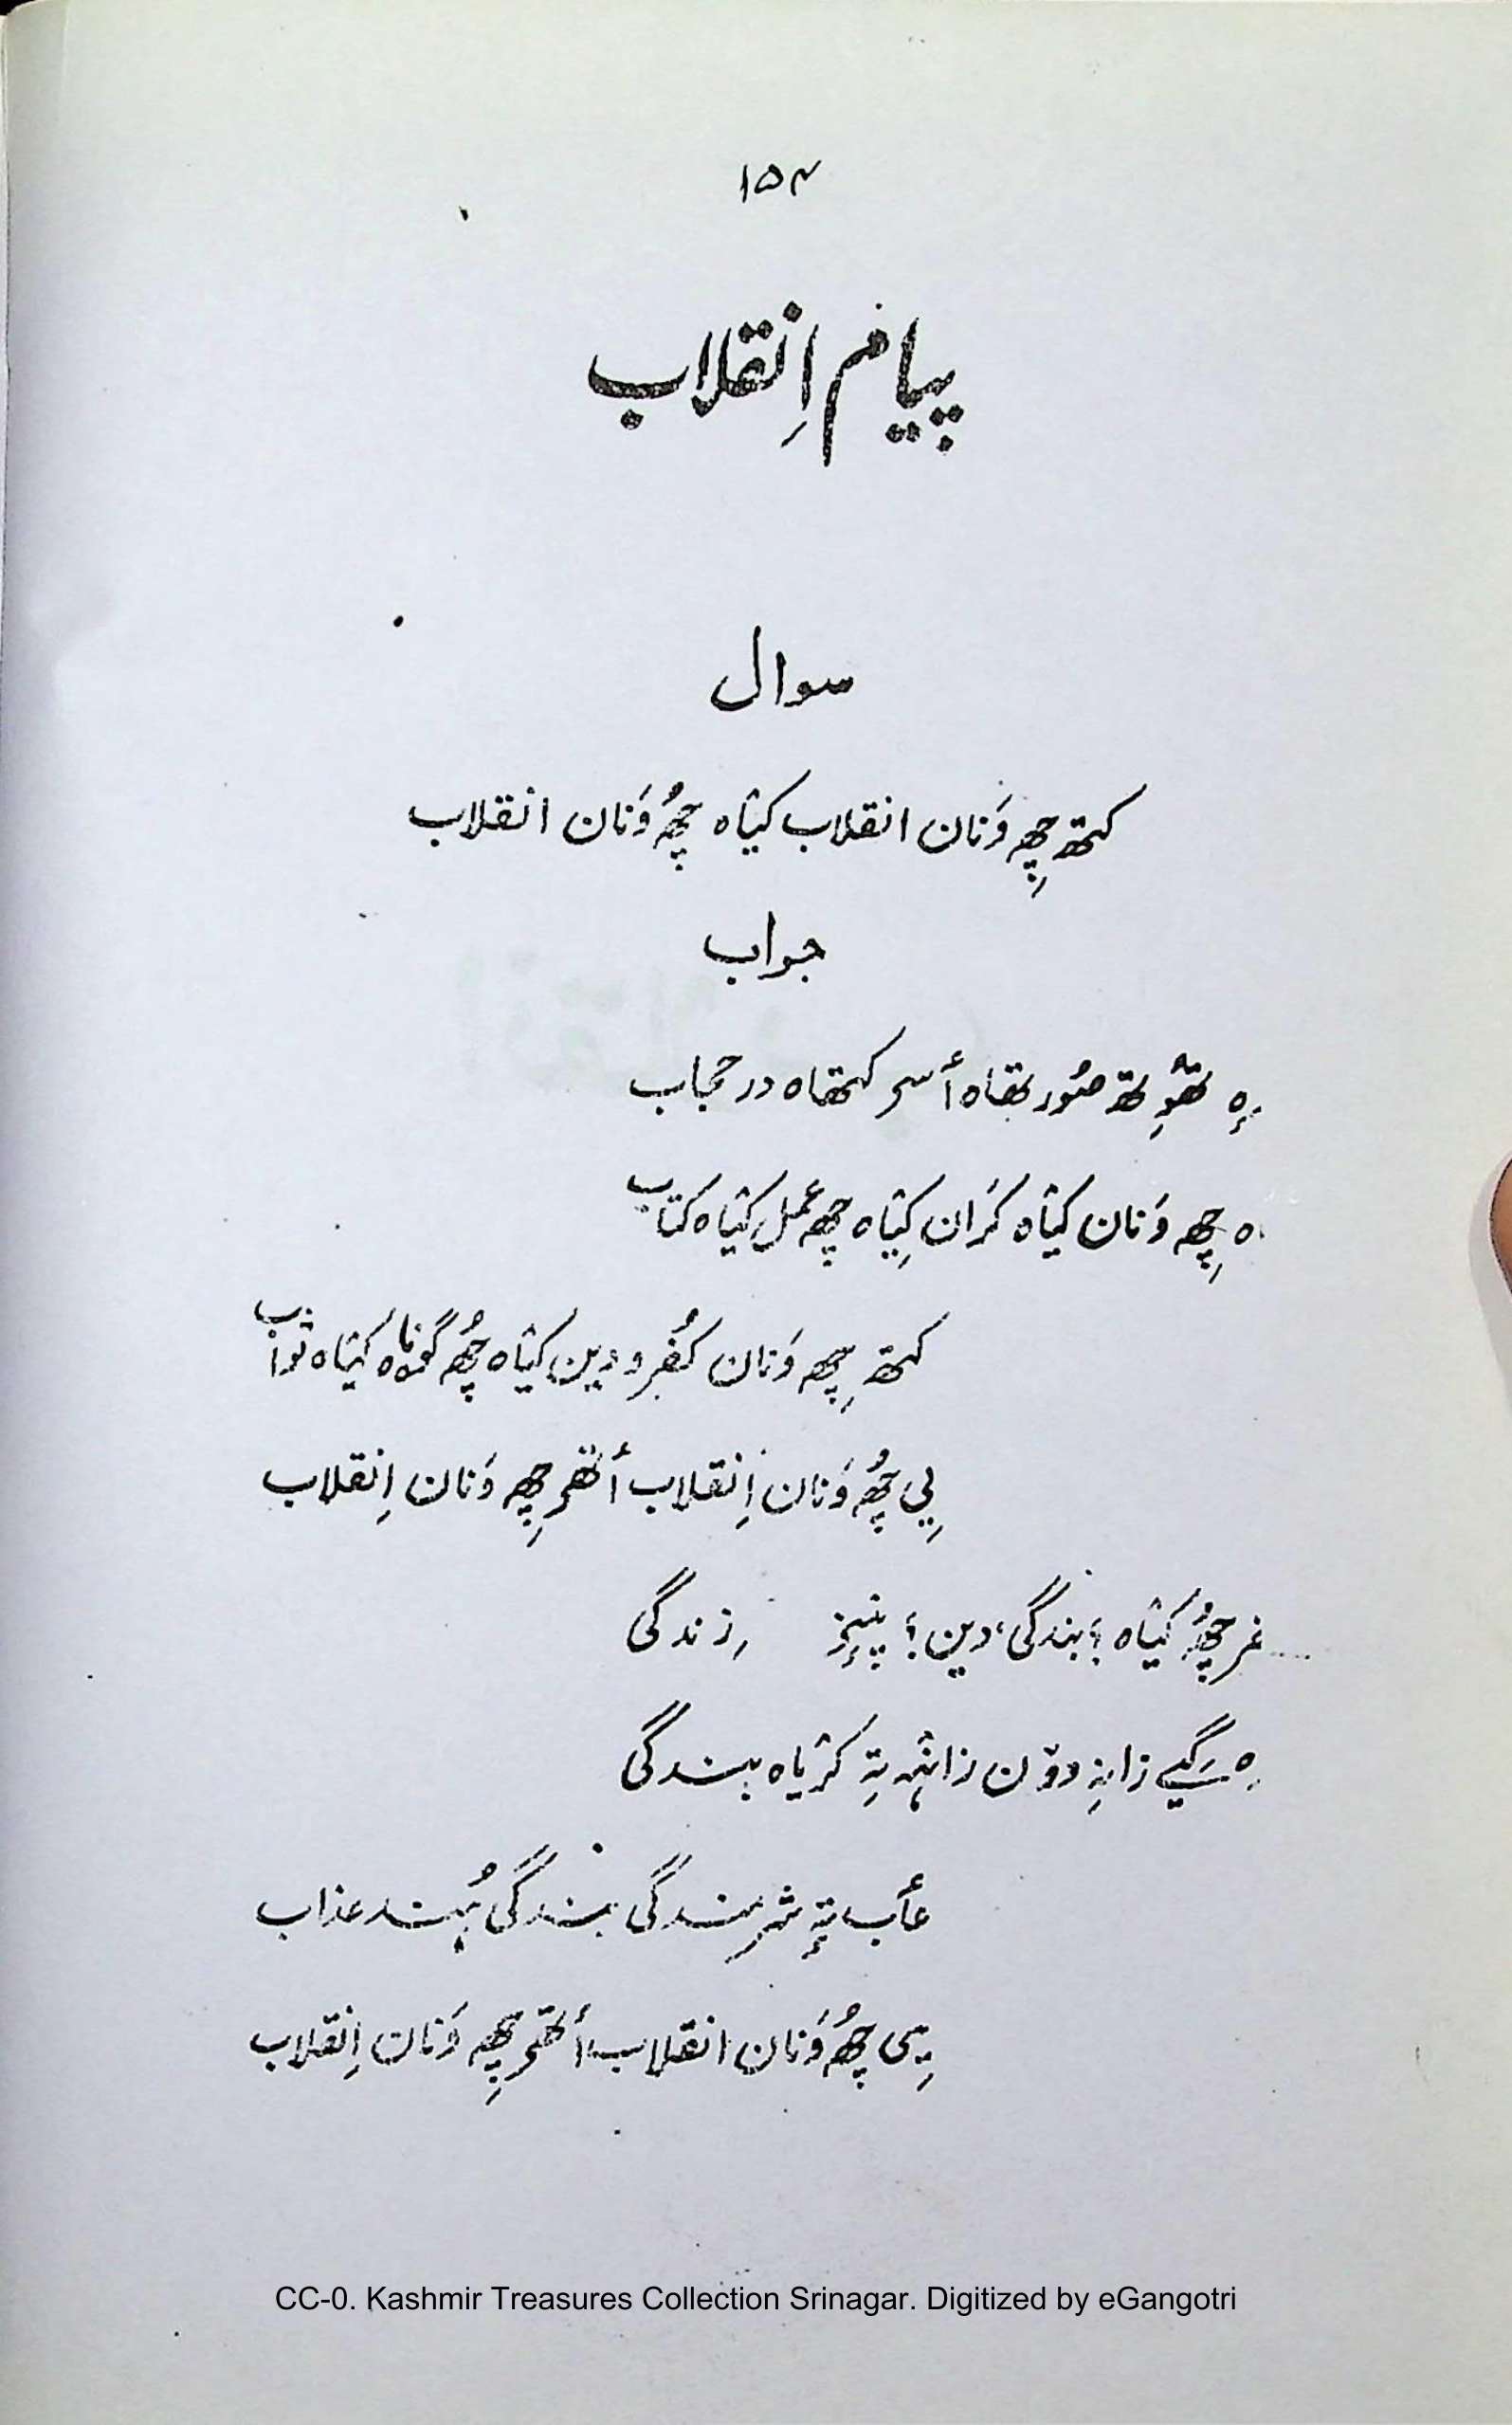 ۱۵۴
پیام اِنقلاب
سوال
کتھ چھِ وَنان انقلاب کیٛاہ چھُ وَنان انقلاب
جواب
تھٔوِتھ ضُور تھاہ أسر کتھاہ در حجاب
چھِ وَنان کیٛاہ کَران کِیٛاہ چھ عمل کیٛاہ کتاب
کتھ چھِ وَنان کُفر و دین کیٛاہ چھُ گوناہ کیٛاہ ثواب
یِی چھُ وَنان اِنقلاب أتھۍ چھِ وَنان اِنقلاب
چھُ کیٛاہ ؛ بندگی، دین ؛ پنِنِز زِندگی
زانہِ دۆن زانٛہہ تہِ کرٛیاہ بندگی
عأب تہٕ شرمِندگی بندگی ہُند عذاب
یِی چھُ وَنان انقلاب أتھۍ چھِ وَنان اِنقلاب
CC-0. Kashmir Treasures Collection Srinagar. Digitized by eGangotri